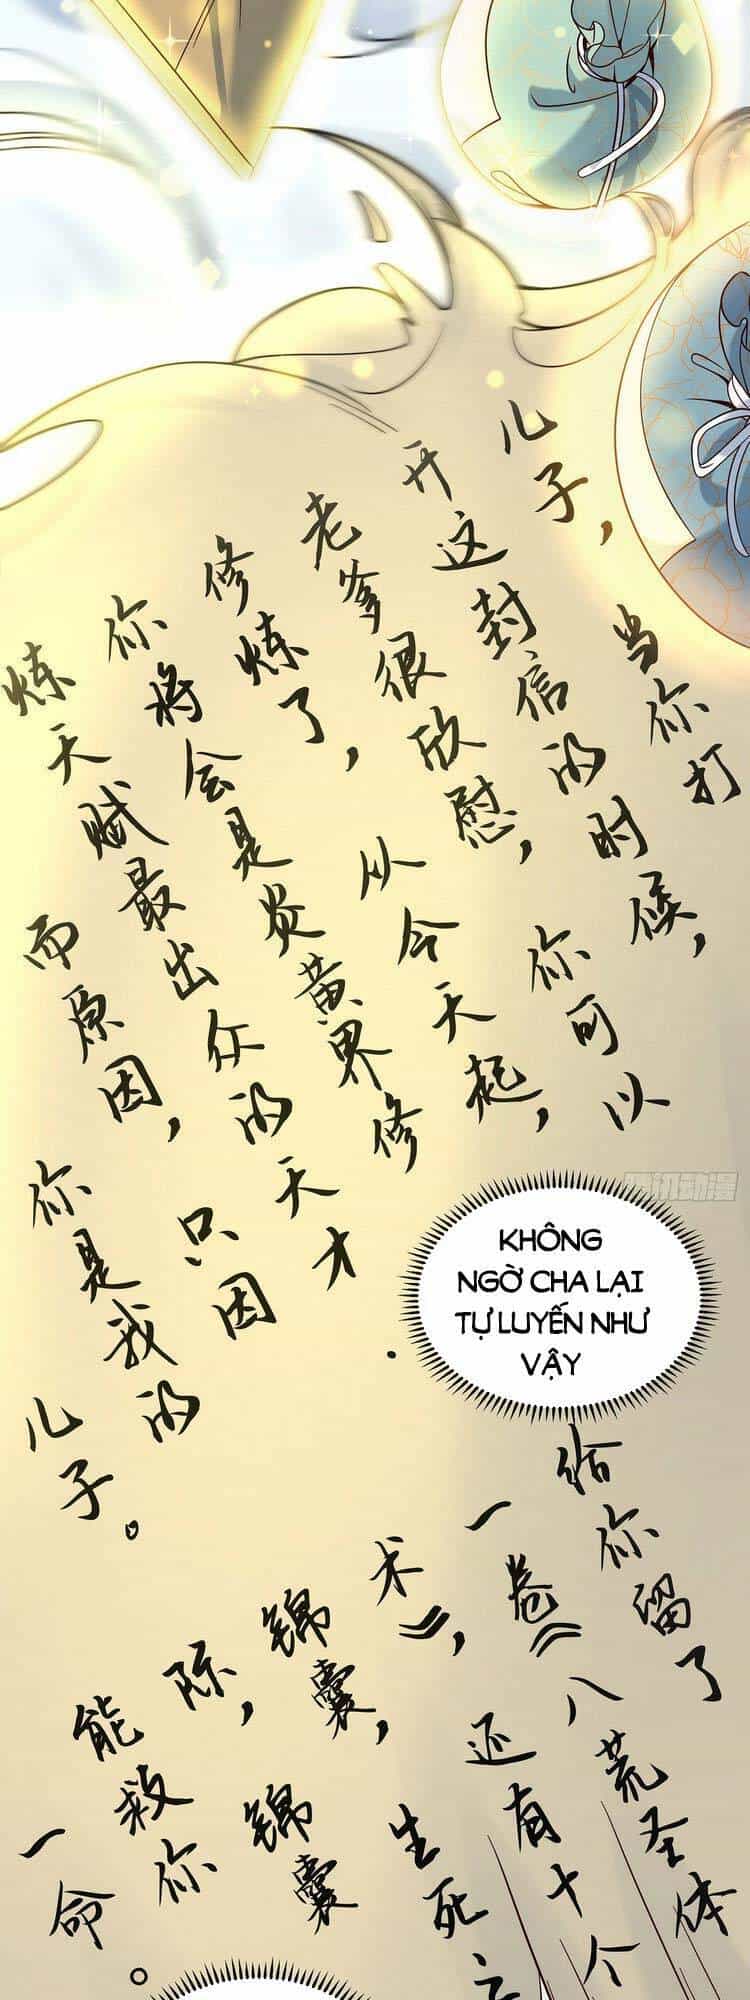 儿子，当你打
开这封信的时候，
老爹很欣慰，你可以
修炼了，从今天起，
你将会是炎黄界修
炼天赋最出众的天才.
而原因，只因
你是我的
儿子。
KHÔNG
NGỜ CHA LẠI
TỰ LUYẾN NHƯ
VẬY
给你留了
一卷《八荒圣体
术》，还有十个
锦囊，生死之
际，锦囊
能救你
一命。
腾讯动漫